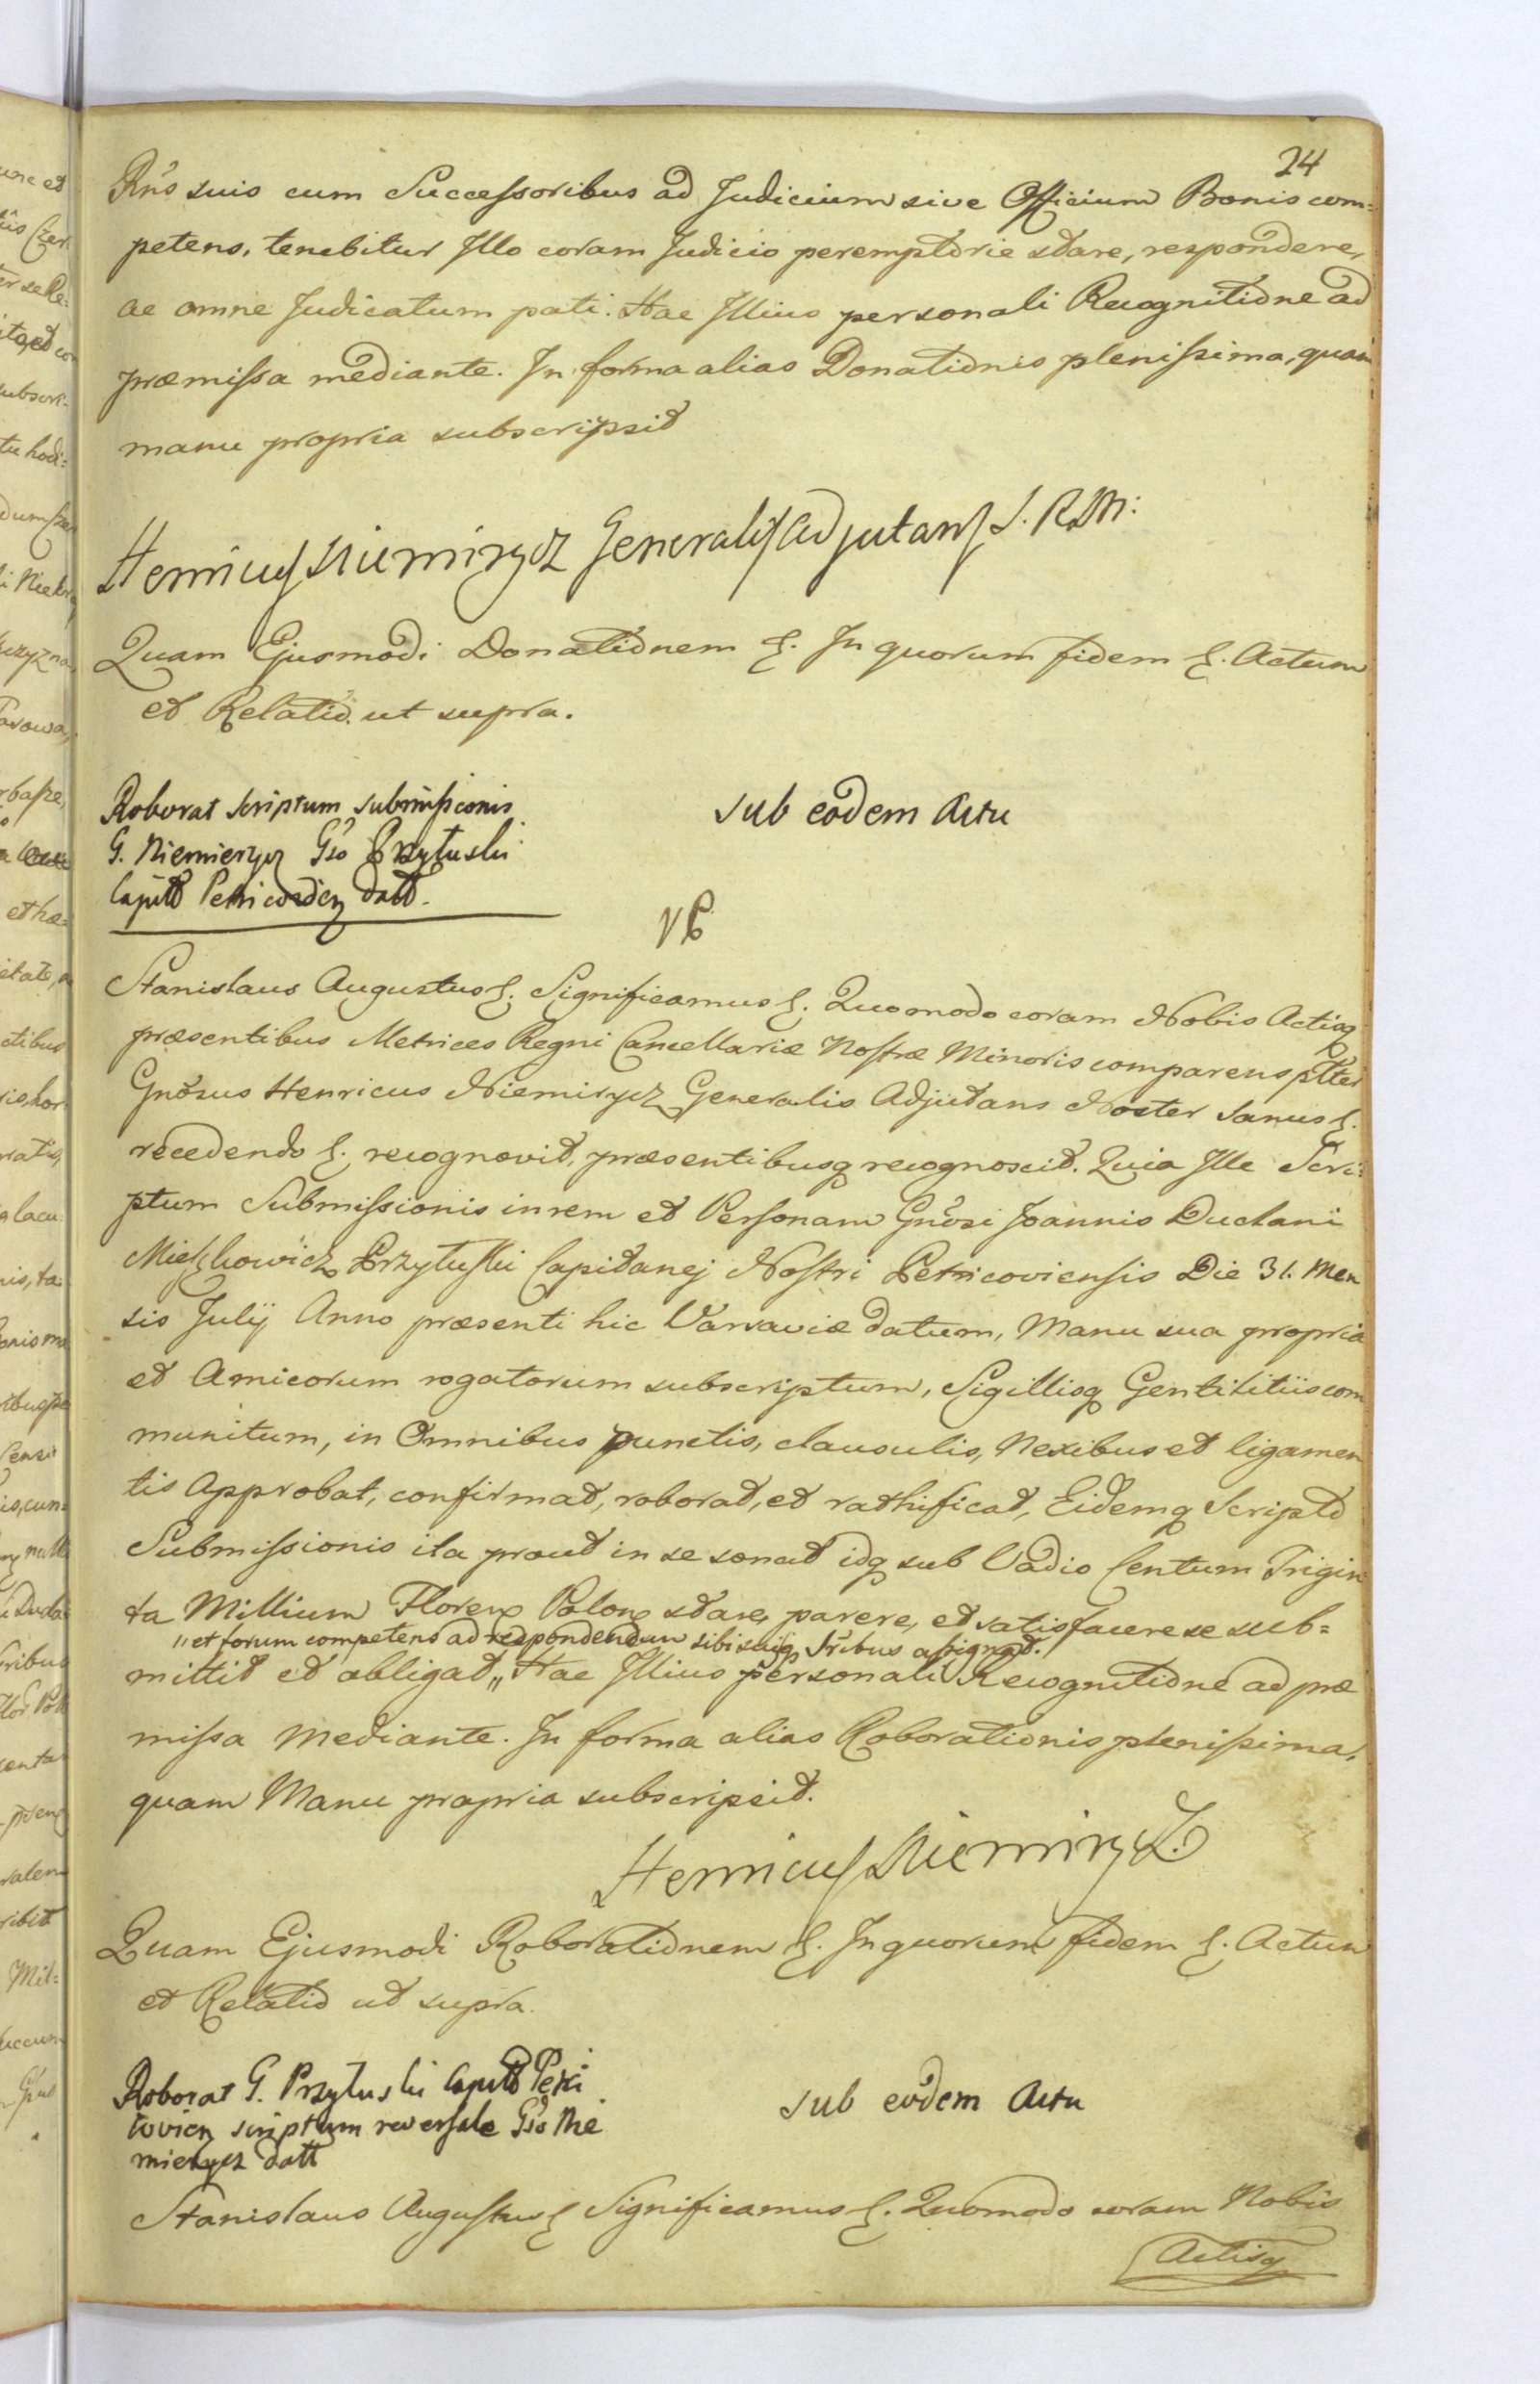 24
Rn̄s suis cum Successoribus ad Judicium sive Officium Bonis com=
petens, tenebitur Illo coram Judicio peremptorie stare, respondere,
ac omne Judicatum pati. Hac Illius personali Recognitione ad
præmissa mediante. In forma alias Donationis plenissima, quam
manu propria subscripsit
Henricus Niemirycz Generalis Adjutans S. R. M:
Quam Ejusmodi Donationem &. In quorum fidem &. Actum
et Relatio ut supra.
Roborat scriptum submissionis
G. Niemierycz Gso Przyłuski
Capitt Petricovien datt.
sub eodem Actu
Stanislaus Augustus &. Significamus &. Quomodo coram Nobis Actisq
præsentibus Metrices Regni Cancellariæ Nostræ Minoris comparens pltter
Gnosus Henricus Niemirycz Generalis Adjutans Noster sanus &.
recedendo &. recognovit, præsentibusq recognoscit. Quia Ille Scri=
ptum Submissionis in rem et Personam Gnosi Joannis Duclani
Przyłuski Capitanej Nostri Petricoviensis Die 31. Men
sis Julij Anno præsenti hic Varsaviæ datum, Manu sua propria
et Amicorum rogatorum subscriptum, Sigillisq Gentilitiis com
munitum, in Omnibus punctis, clausulis, Nexibus et ligamen
tis Approbat, confirmat, roborat, et rathificat, Eidemq Scripto
Submissionis ita prout in se sonat idq sub Vadio Centum Trigin
ta Millium Floren Polon stare, parere, et satisfacere se sub=
"et forum competens ad respondendum sibi suisq Sribus assignat.
mittit et obligat,, Hac Illius personali Recognitione ad præ
missa mediante. In forma alias Roborationis plenissima,
quam Manu propria subscripsit.
Henricus Niemirycz
Quam Ejusmodi Roborationem &. In quorum fidem &. Actum
et Relatio ut supra.
Roborat G. Przyłuski Capitt Petri
covien scriptum reversale Gso Nie
mierycz datt
sub eodem Actu
Stanislaus Augustus & Significamus &. Quomodo coram Nobis
Actisq